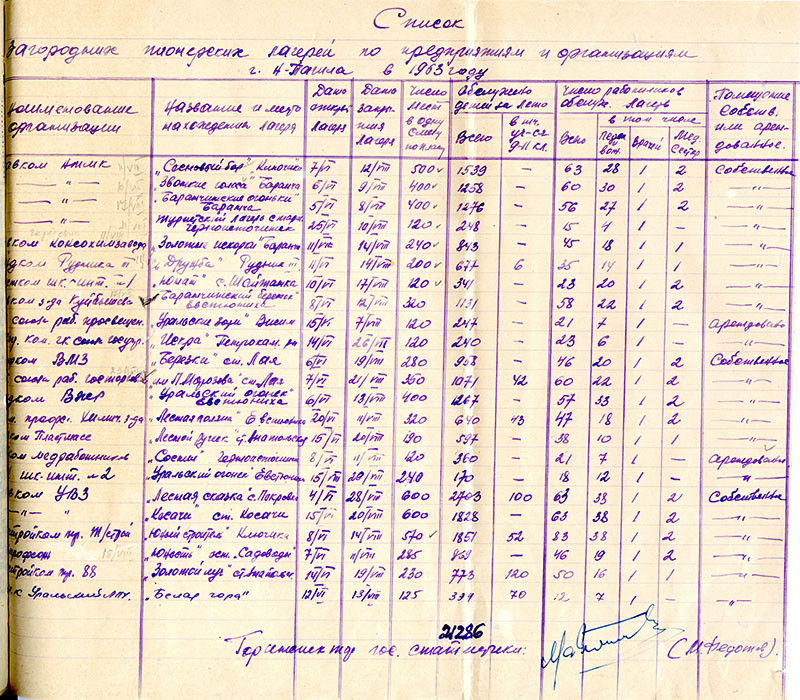 Список
Загородних пионерских лагерей по предприятиям и организациям
г. Н-Тагила в 1963 году
Наименование организации | Название и место нахождения лагеря | Дата откры. лагеря | Дата закры- тия лагеря | Число мест в одну смену по плану | Обслужено детей за лето | Число работников обслуж. лагерь | Помещение собств. или арен- дованное.
Всего | в т.ч. уч-ся 9-11 кл. | Всего | в том числе | Пион. вож. | Врачей | Мед. сестер
авком НТМК | "Сосновый бор" Ключики | 7/VI | 12/VIII | 500 | 1539 | — | 63 | 28 | 1 | 2 | Собственные
—"— | Звонкие голоса" Баранча | 6/VI | 9/VIII | 400 | 1258 | — | 60 | 30 | 1 | 2 | —"—
—"— | "Баранчинские огоньки" Баранча | 5/VI | 8/VIII | 400 | 1276 | — | 56 | 27 | 1 | 2 | —"—
—"— | туристский лагерь Черноисточинск | 25/VI | 10/VIII | 120 | 248 | — | 15 | 4 | 1 | - | —"—
вком Коксохимзавод | "Золотые искорки" Баранча | 11/VI | 14/VIII | 240 | 843 | — | 45 | 18 | 1 | 1 | —"—
дком Рудника III | "Дружба" Рудник III | 11/VI | 14/VIII | 200 | 677 | 6 | 35 | 14 | 1 | 1 | —"—
шк. инт. №1 | "Юнат" с. Шайтанка | 10/VI | 17/VIII | 120 | 341 | — | 23 | 20 | 1 | 2 | —"—
вком з-да Куйбышева | "Баранчинский березки" Евстюниха | 8/VI | 12/VIII | 320 | 1131 | — | 58 | 22 | 1 | 2 | —"—
союза раб. просвещен. | "Уральские зори" Висим | 15/VI | 7/VIII | 120 | 247 | — | 21 | 7 | 1 | — | арендовано
"Искра" Петрокам. | 14/VI | 120 | 240 | — | 23 | 6 | 1 | — | —"—
ком ВМЗ | "Березки" ст. Лая | 6/VI | 19/VIII | 280 | 958 | — | 46 | 20 | 1 | 2 | Собственные
союза раб. госторгов | им П. Морозова ст. Лая | 7/VI | 21/VIII | 350 | 1071 | 42 | 60 | 22 | 1 | 2 | —"—
"Уральский огонек" Евстюниха | 6/VI | 13/VIII | 400 | 1267 | — | 57 | 33 | 1 | 2 | —"—
профс. Химич. з-да | "Лесная поляна" Евстюниха | 20/VI | 11/VIII | 320 | 640 | 43 | 47 | 18 | 1 | 2 | —"—
ком Пластмасс | "Лесной ручек" ст. Анатольская | 15/VI | 20/VIII | 190 | 597 | — | 38 | 10 | 1 | 1 | —"—
ком медработников | "Сосны" Черноисточинск | 8/VI | 11/VIII | 120 | 360 | — | 21 | 7 | 1 | — | арендован.
шк-инт. №2 | "Уральский огонек" Евстюниха | 15/VI | 29/VIII | 240 | 170 | — | 18 | 12 | 1 | — | —"—
вком УВЗ | "Лесная сказка" с. Покровка | 4/VI | 28/VIII | 600 | 2703 | 100 | 63 | 38 | 1 | 2 | Собственные
—"— | "Косачи" ст. Косачи | 15/VI | 20/VIII | 600 | 1828 | — | 63 | 38 | 1 | 2 | —"—
стройком тр. Т/строй | "Юный строитель" Ключики | 8/VI | 14/VIII | 570 | 1851 | 52 | 83 | 38 | 1 | 2 | —"—
"Юность" ост. "Садоводы" | 7/VI | 11/VIII | 285 | 869 | — | 46 | 19 | 1 | 2 | —"—
стройком тр. 88 | "Золотой луч" ст. Анатольск. | 14/VI | 19/VIII | 230 | 773 | 120 | 50 | 16 | 1 | 1 | —"—
"Белая гора" | 12/VI | 13/VIII | 125 | 70 | 12 | 7 | 1 | - | —"—
21286
Горинспектор гос. статистики: (М. Федотов).